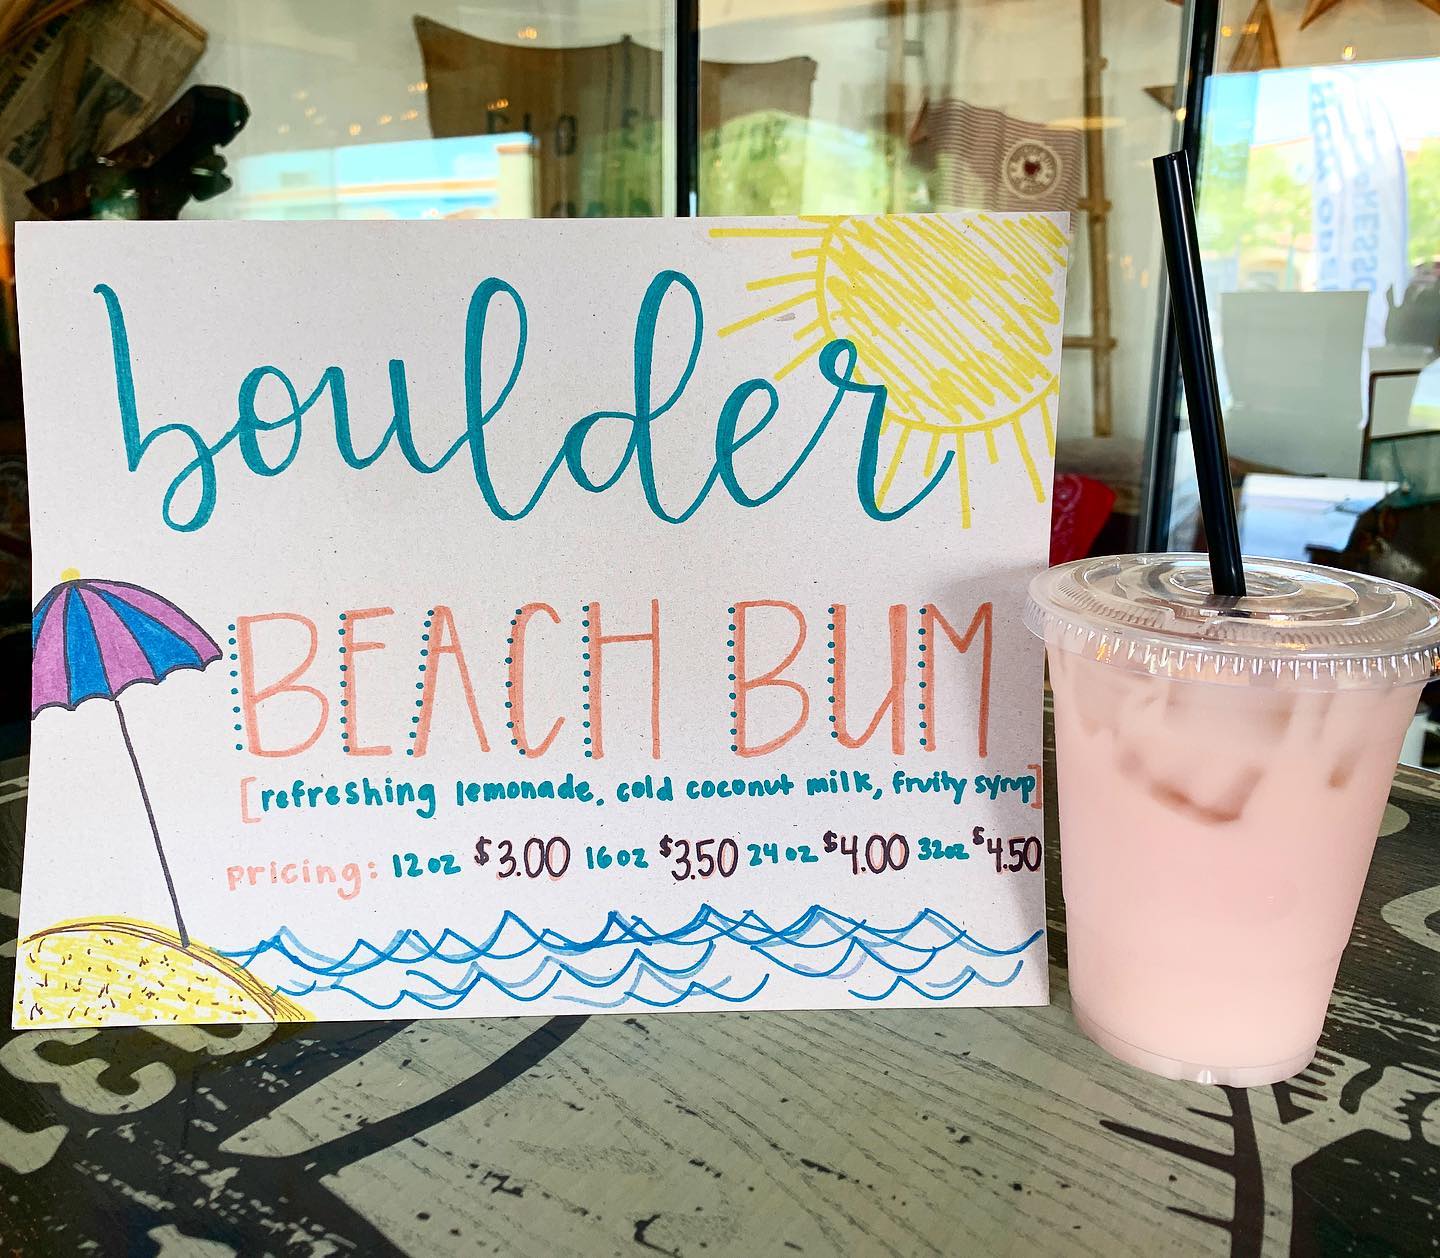 boulder
BEACH BUM
[refreshing lemonade, cold coconut milk, fruity syrup]
pricing: 12oz $3.00 16oz $3.50 24oz $4.00 32oz $4.50